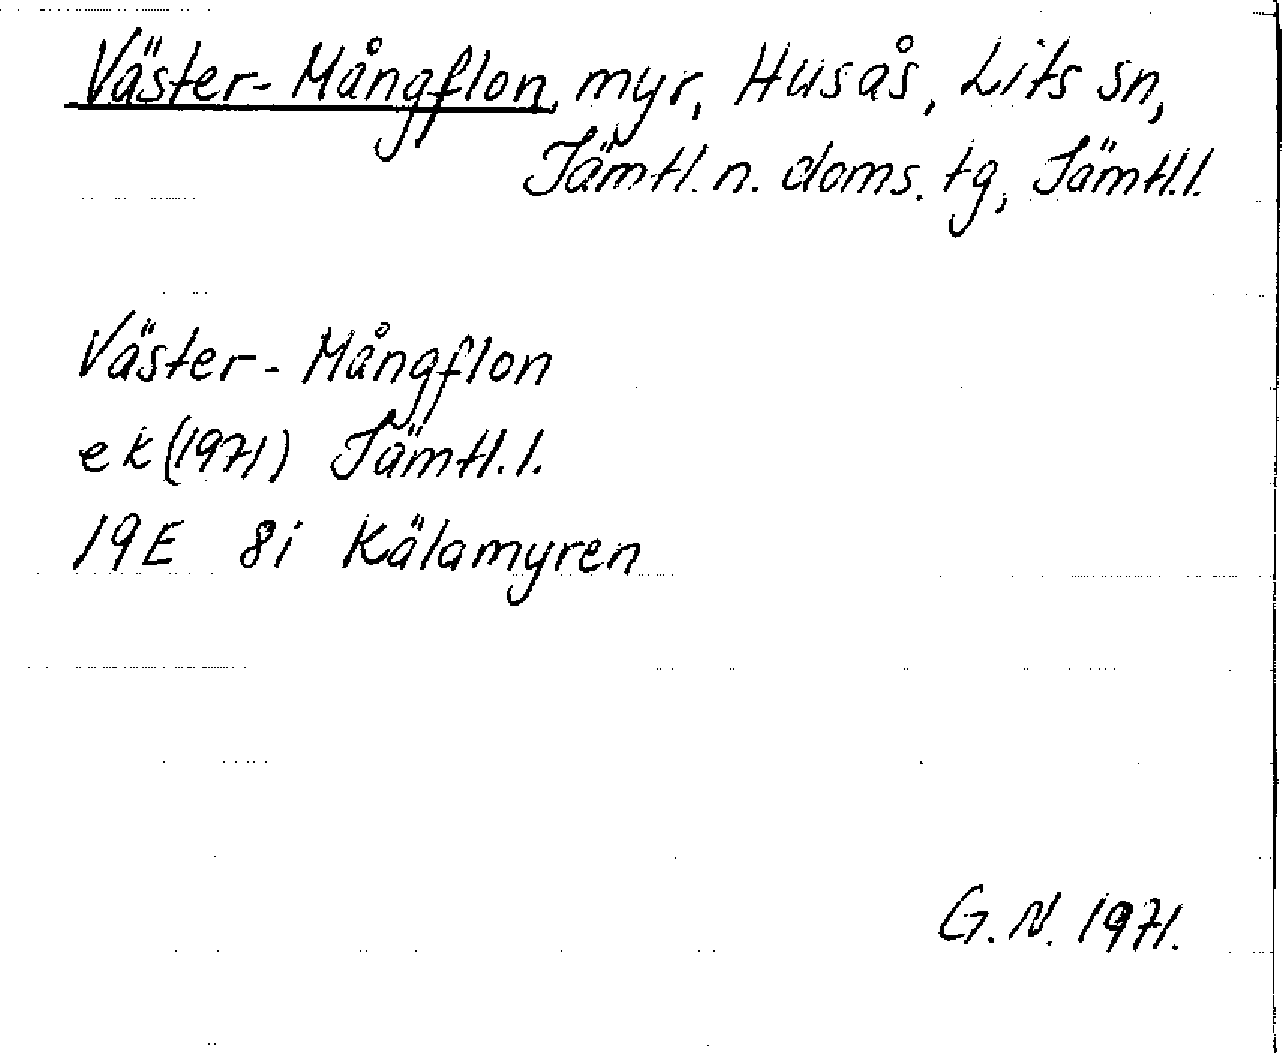 Väster-Mångflon, myr, Husås, Lits sn,
Jämtl. n. doms. tg, Jämtl. l.
Väster-Mångflon
ek (1971) Jämtl. l.
19E 8i Kälamyren
G. N. 1971.